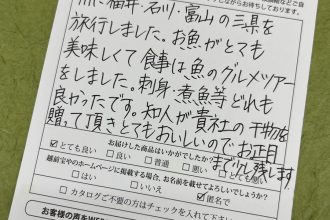 福井・石川・富山の三県を
旅行しました。お魚がとても
美味しくて食事は魚のグルメツアー
をしました。刺身・煮魚等どれも
良かったです。知人が貴社の干物を
贈って頂きとてもおいしいのでお正月
まで残します
お届けした商品はいかがでしたか?
☑とても良い □良い □普通 □悪い □とても悪い
越前宝やのホームページに掲載する場合、お名前を載せてよろしいでしょうか?
□はい □いいえ ☑匿名で
□カタログご不要の方はチェックを入れて下さい。
お客様の声をWEB